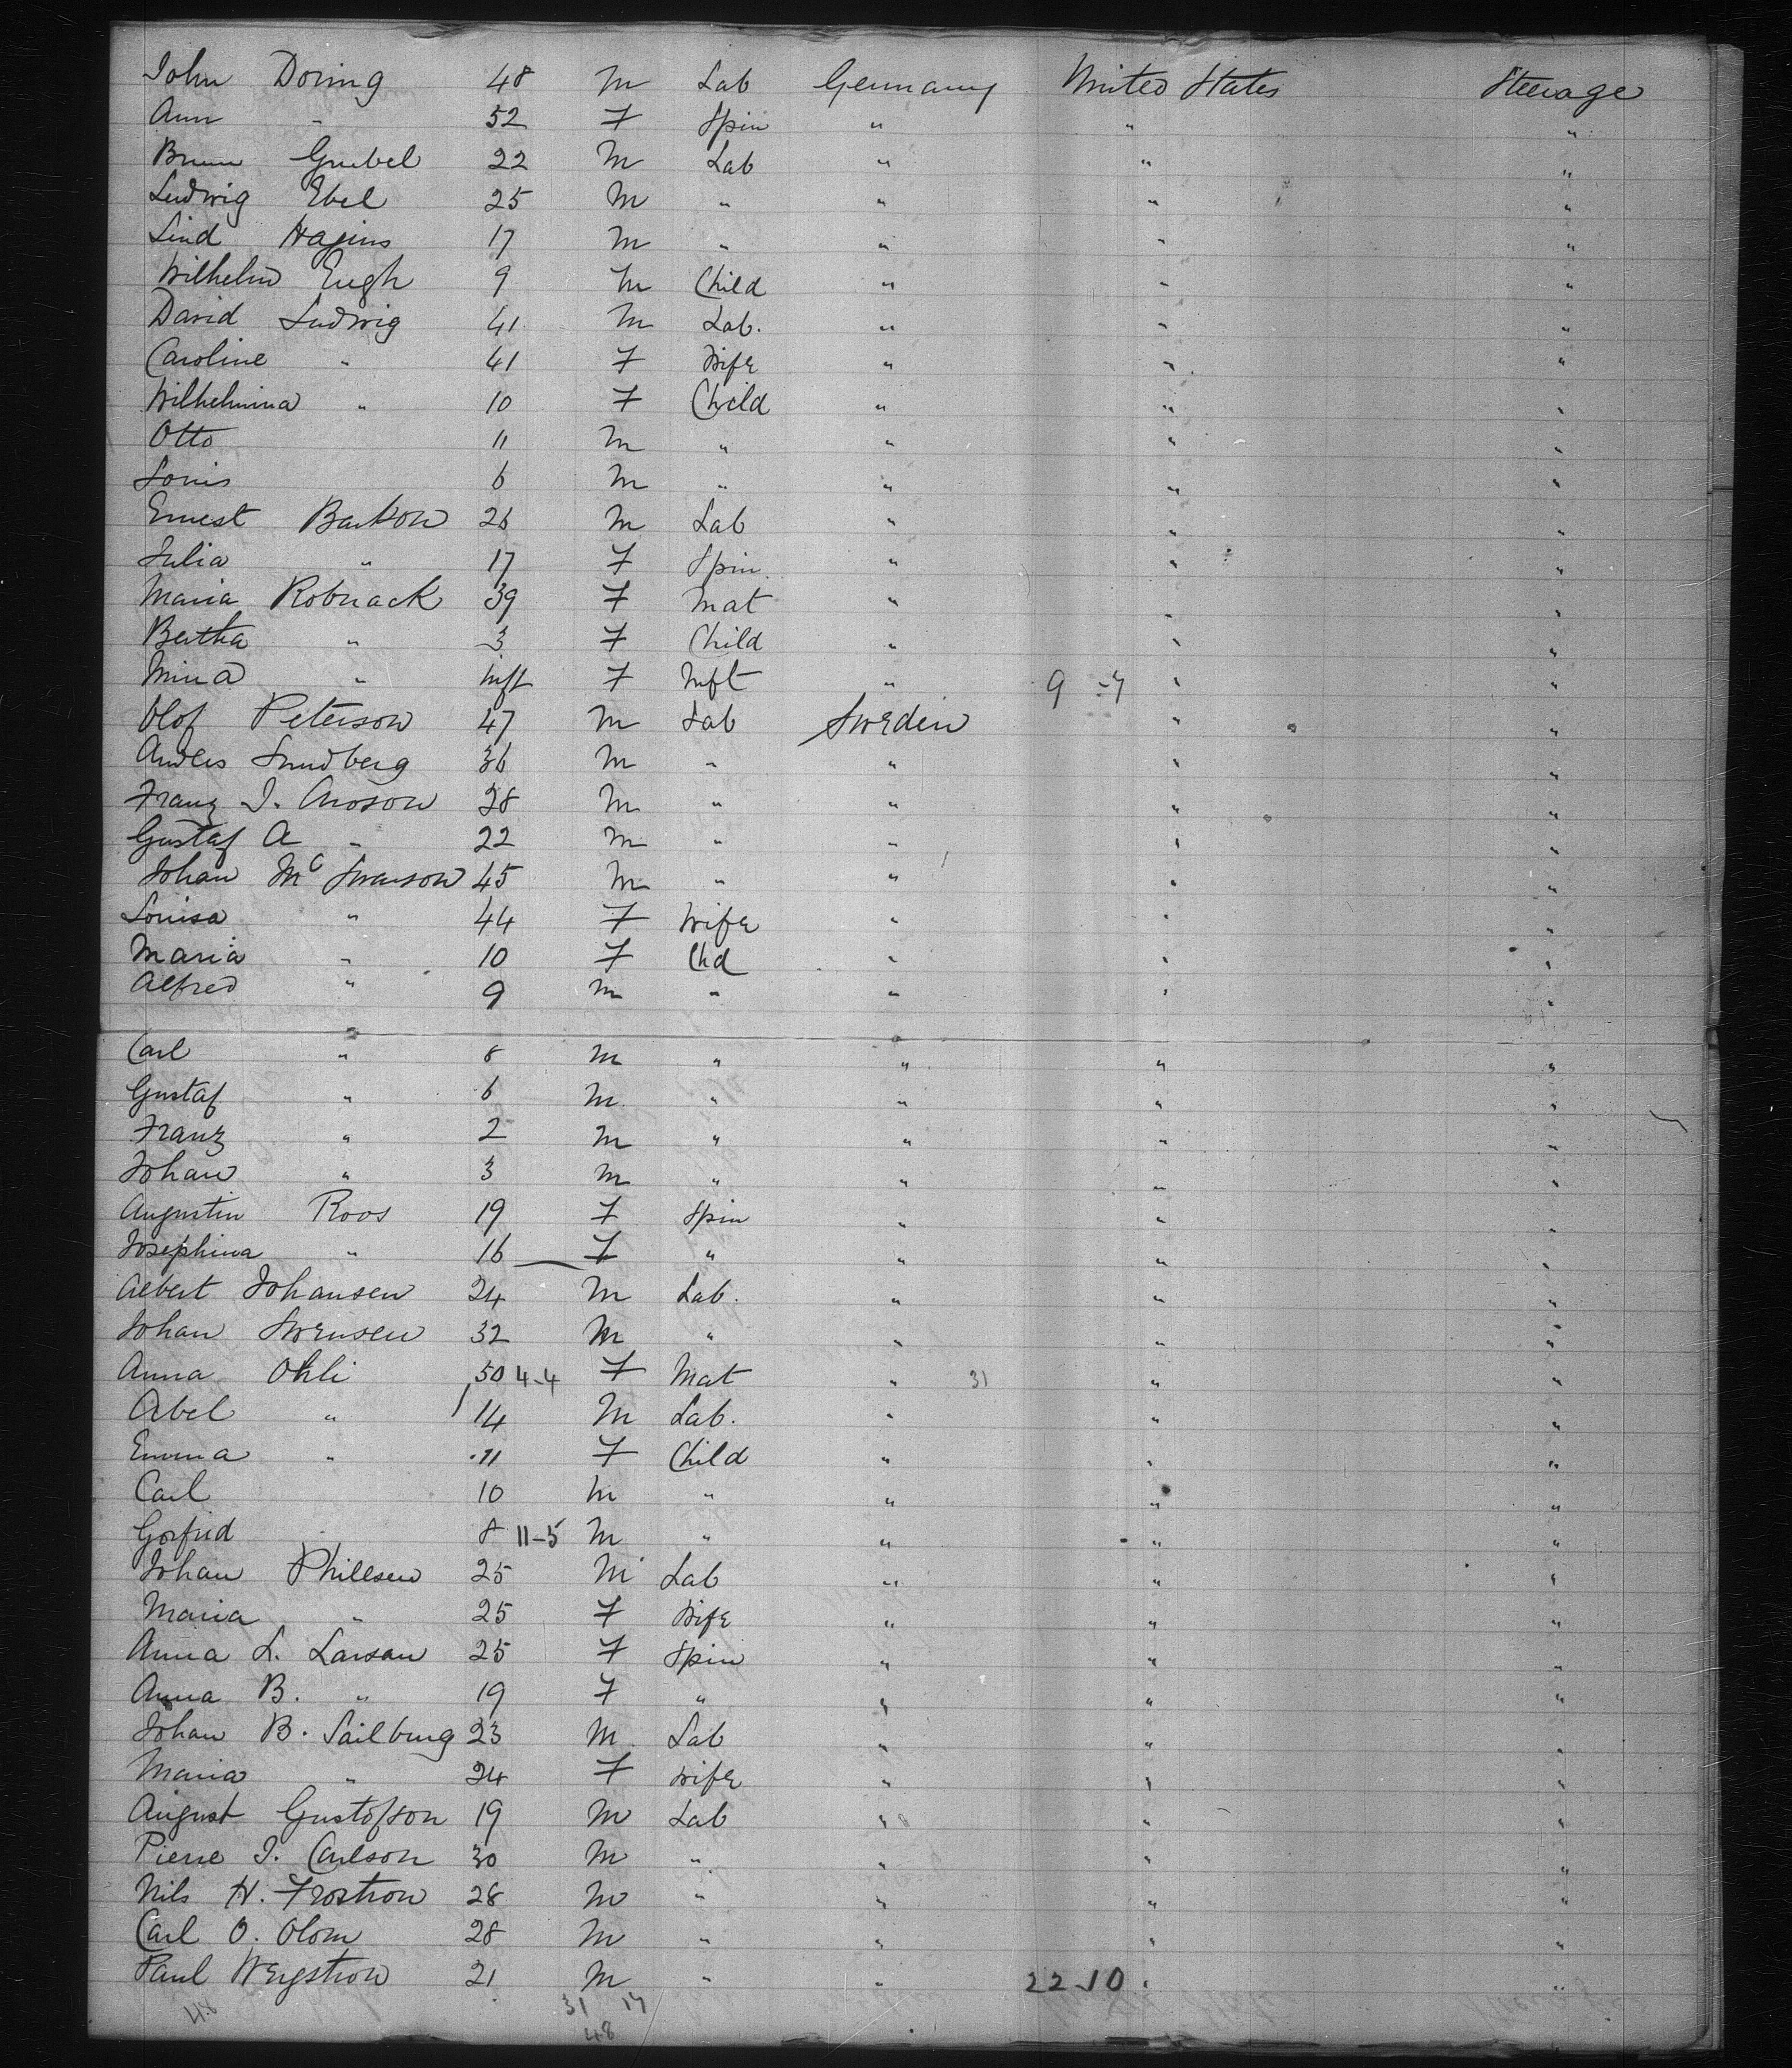 John Doring 48 M Lab Germany United States Steerage
Ann " 52 F Spin " " "
Brunn Grubel 22 M Lab " " "
Ludwig Ebel 25 M " " " "
Lind Hagins 17 M " " " "
Wilhelm Eugh 9 M Child " " "
David Ludwig 41 M Lab. " " "
Caroline " 41 F Wife " " "
Wilhelmina " 10 F Child " " "
Otto 11 M " " " "
Louis 6 M " " " "
Ernest Barkow 26 M Lab " " "
Julia " 17 F Spin. " " "
Maria Robnack 39 F Mat " " "
Bertha " 3 F Child " " "
Mina " inft F Inft " 9 - 7 " "
Olof Peterson 47 M Lab Sweden " "
Andles Sundberg 36 M " " " "
Franz I. Aroson 28 M " " " "
Gustaf A " 22 M " " " "
Johan Mc Swanson 45 M " " " "
Louisa " 44 F Wife " " "
Maria " 10 F Chd " " "
Alfred " 9 M " " " "
Carl " 8 M " " " "
Gustaf " 6 M " " " "
Franz " 2 M " " " "
Johan " 3 M " " " "
Augustin Roos 19 F Spin " " "
Josephina " 16 F " " " "
Albert Johansen 24 M Lab. " " "
Johan Swensen 32 M " " " "
Anna Ohli 50 4-4 F Mat " 31 " "
Abel " 14 M Lab. " " "
Emma " 11 F Child " " "
Carl 10 M " " " "
Gosfrid 8 11-5 M " " " "
Johan Phillsen 25 M Lab " " "
Maria " 25 F Wife " " "
Anna L. Larsan 25 F Spin " " "
Anna B. " 19 F " " " "
Johan B. Sailburg 23 M Lab " " "
Maria " 24 F Wife " " "
August Gustofson 19 M Lab " " "
Pierre I. Carlson 30 M " " " "
Nils H. Frostrow 28 M " " " "
Carl O. Olom 28 M " " " "
Paul Wergstrow 21 M " " 22-10 " "
48 31 17
48